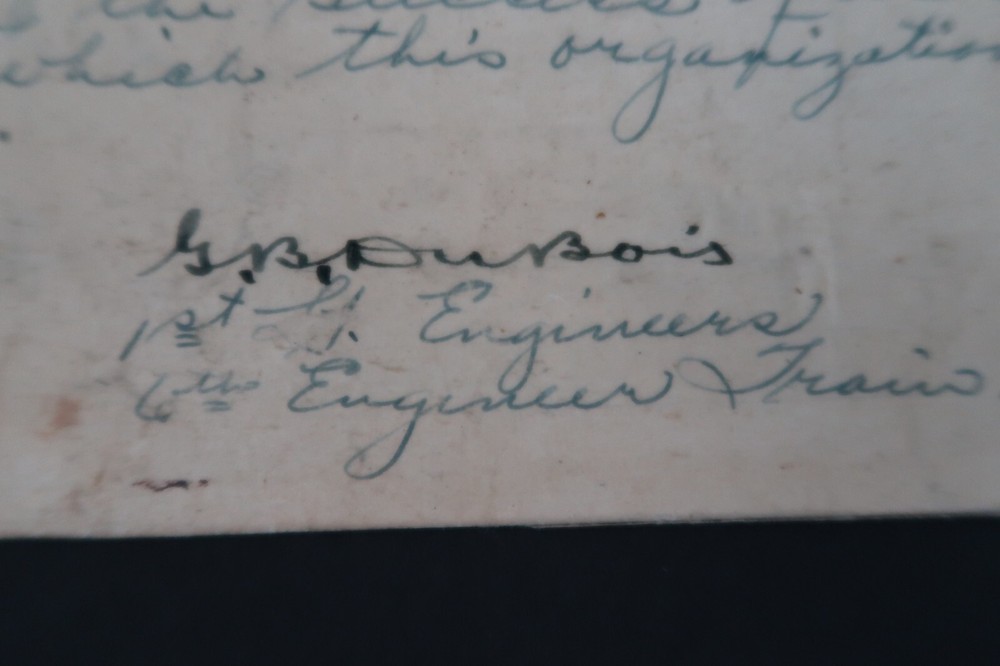 the success of
which this organization
.
G. B. DuBois
1st Lt. Engineers
6th Engineer Train